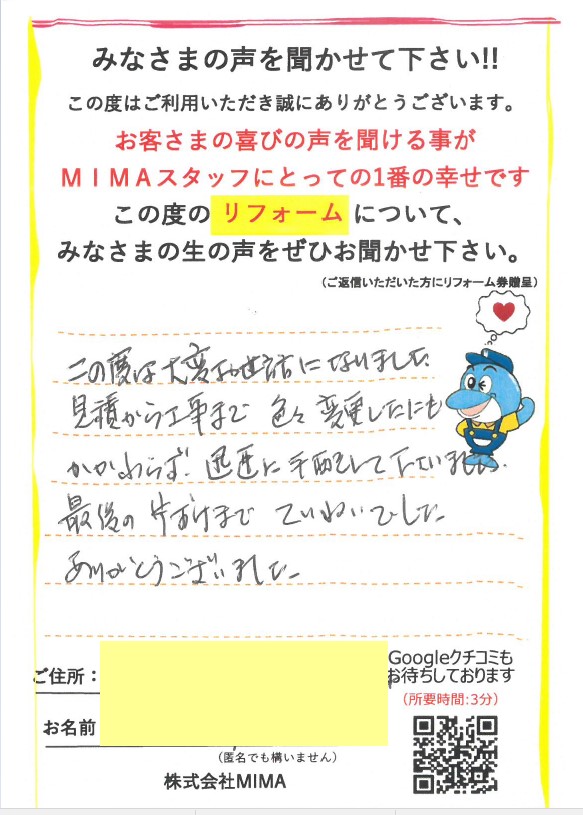 みなさまの声を聞かせて下さい!!
この度はご利用いただき誠にありがとうございます。
お客さまの喜びの声を聞ける事が
MIMAスタッフにとっての1番の幸せです
この度の リフォーム について、
みなさまの生の声をぜひお聞かせ下さい。
(ご返信いただいた方にリフォーム券贈呈)
この度は大変お世話になりました
見積から工事まで 色々変更したにも
かかわらず 迅速に手配して下さいました。
最後の片づけまで ていねいでした
ありがとうございました
ご住所：
Googleクチコミも
お待ちしております
(所要時間:3分)
お名前
(匿名でも構いません)
株式会社MIMA